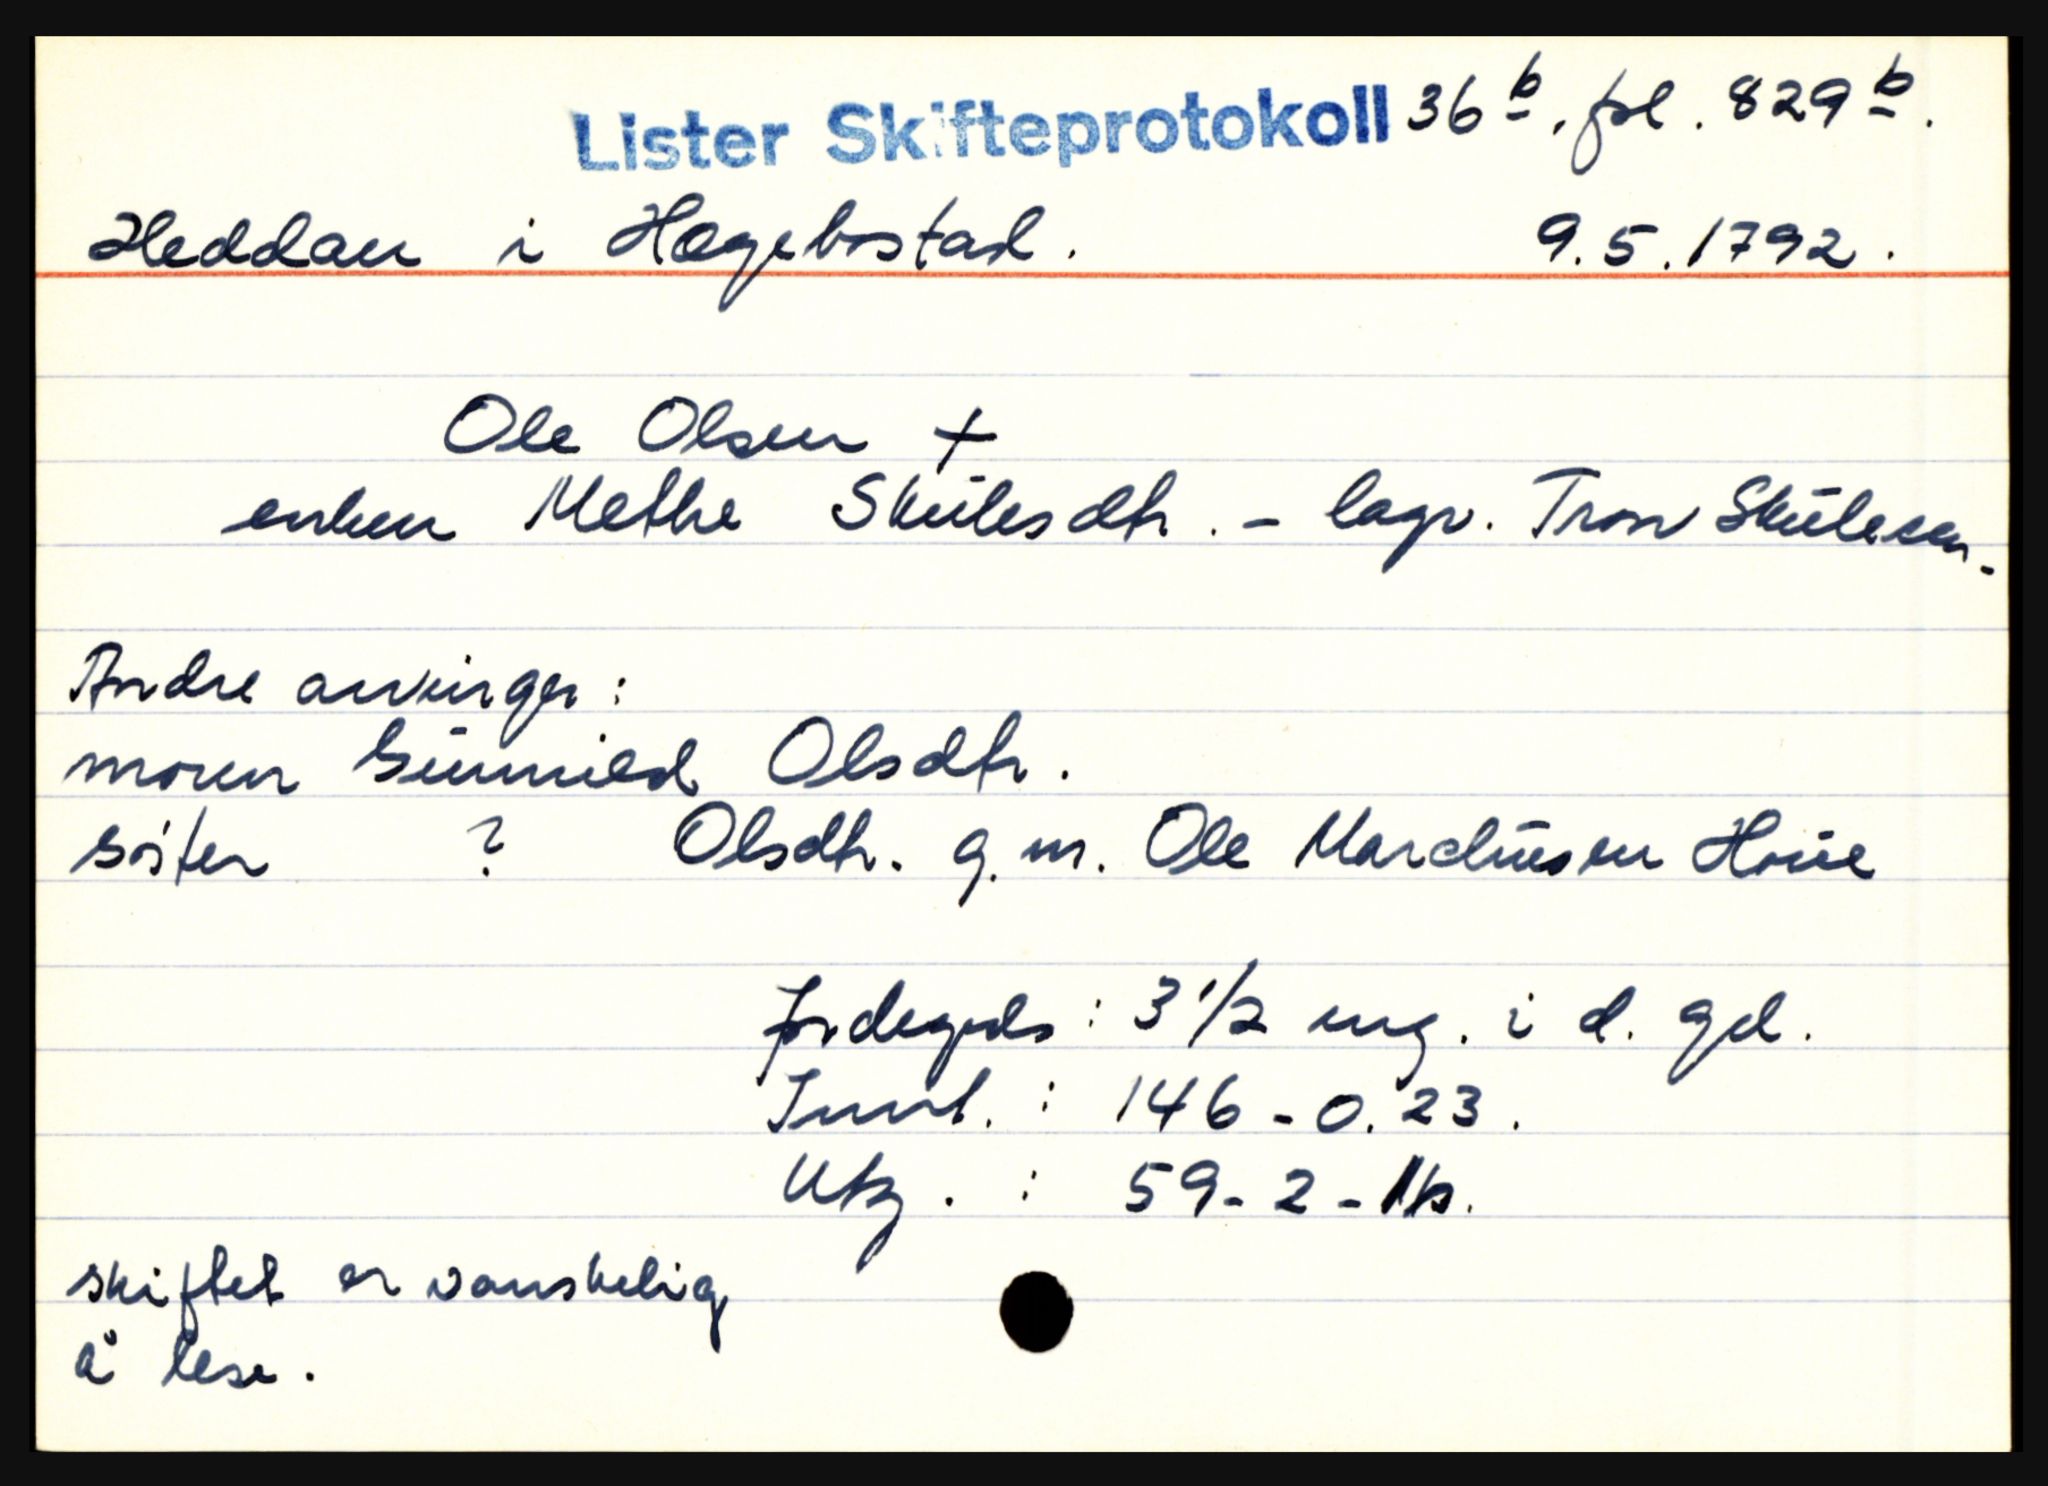 Lister Skifteprotokoll 36 b, fol. 829 b.
Heddan i Hægebostad. 9.5.1792.
Ole Olsen +
enken Methe Skūlesdtr. - lagv. Tron Skūlesen.
Andre arvinger:
moren Gūnnild Olsdtr.
söster ? Olsdtr. g.m. Ole Marchūsen Hoūe
Jordegods: 3 1/2 eng. i d. gd.
Innt.: 146-0.23.
Utg.: 59-2-
skiftet er vanskelig
å lese.